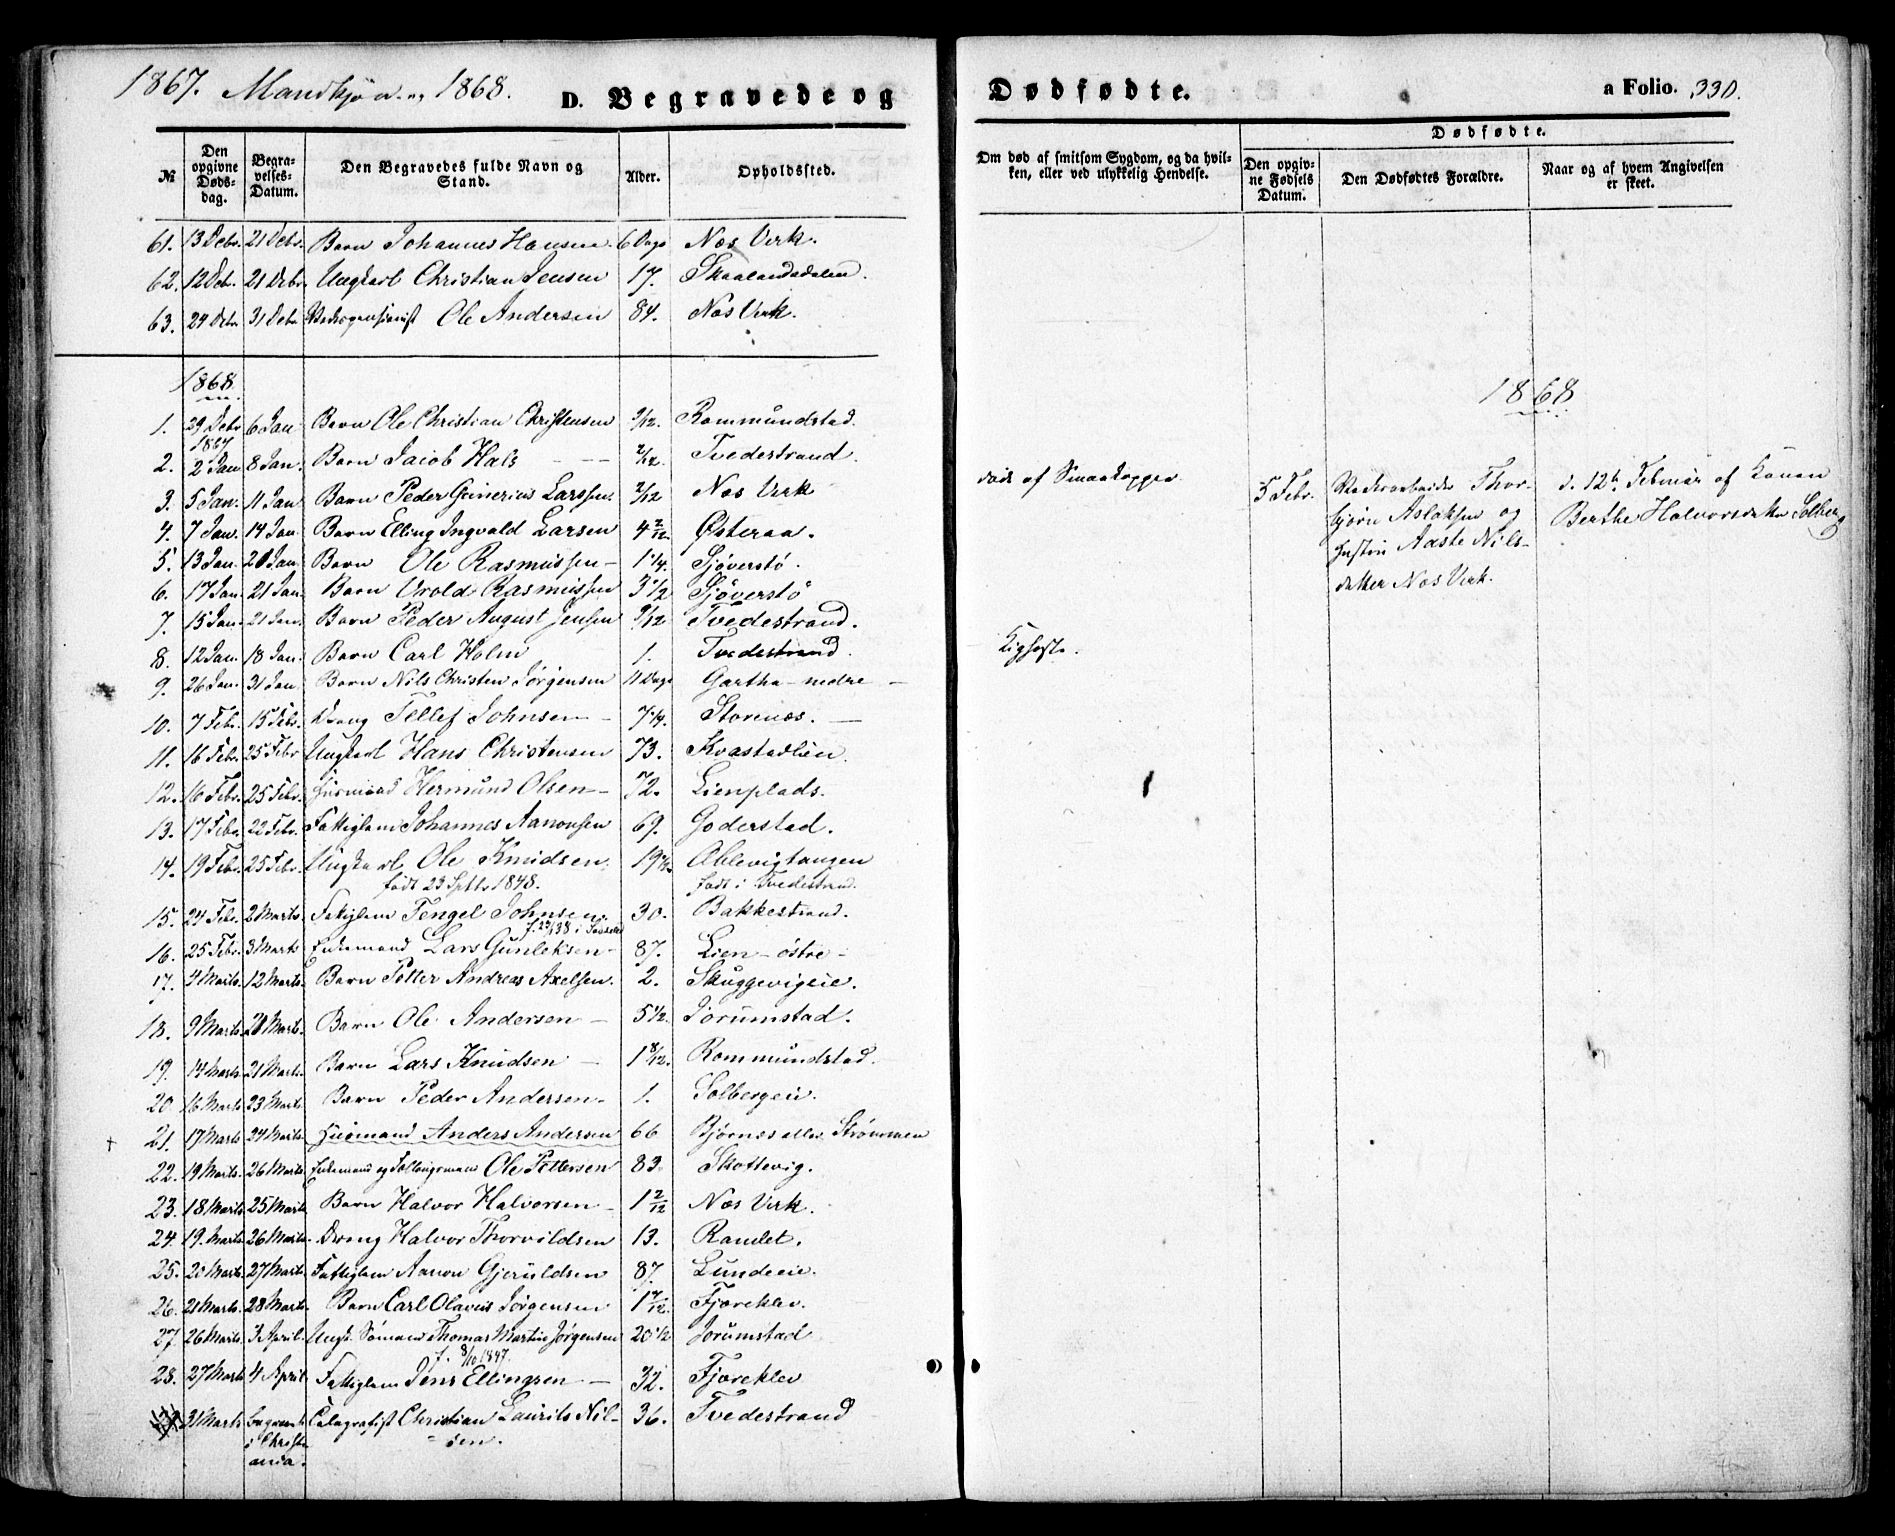 1867. Mandkjøn. 1868.
D. Begravede og
Dødfødte.
a Folio. 330.
№
Den opgivne Døds-dag.
Begra-velses-Datum.
Den Begravedes fulde Navn og Stand.
Alder.
Opholdssted.
Om død af smitsom Sygdom, og da hvil-ken, eller ved ulykkelig Hendelse.
Dødfødte.
Den opgiv-ne Fødsels Datum.
Den Dødfødtes Forældre.
Naar og af hvem Angivelsen er skeet.
61. 13 Debr. 21 Debr. Barn Johannes Hansen. 6 Dage Næs Verk.
62. 12 Debr. 21 Debr. Ungkarl Christian Jensen 17. Skaalandsdalen.
63. 24 Debr. 31 Debr. Ole Andersen 84. Næs Verk.
1868
1868
1. 29 Debr 1867 6 Jan Barn Ole Christian Christensen 3/12. Rommundstad.
2. 2 Jan 8 Jan. Barn Jacob Hals 2/12. Tvedestrand.
3. 5 Jan. 11 Jan Barn Peder Gunerius Larssen. 2/12 Næs Verk
død af Smaakopper
4. 7 Jan. 14 Jan. Barn Elling Ingvald Larsen 4 2/12 Østeraa.
5. 13 Jan. 20 Jan. Barn Ole Rasmussen 1 1/4. Sjøverstø.
6. 17 Jan. 21 Jan. Barn Vrold Rasmussen 3 1/2 Sjøverstø
7. 15 Jan. 21 Jan. Barn Peder August Jensen 9/12 Tvedestrand.
8. 12 Jan. 18 Jan. Barn Carl Holm 1. Tvedestrand.
Kighoste.
9. 26 Jan. 31 Jan Barn Nils Christen Jørgensen 11 Dage Gartha nedre
5 Febr. Thor-
bjørn Aslaksen og
Hustru Aaste Nils-
datter Næs Verk.
d. 12te Februar af Konen
Berthe Halvorsdatter Solberg
10. 7 Febr. 15 Febr. Dreng Tellef Johnsen 7 1/4. Storenæs.
11. 16 Febr. 25 Febr Ungkarl Hans Christensen 73. Kvastadlien.
12. 16 Febr. 25 Febr. Huusmand Hermund Olsen 72. Lienplads.
13. 17 Febr. 22 Febr. Fattiglem Johannes Aanonsen 69. Goderstad.
14. 19 Febr. 25 Febr. Ungkarl Ole Knudsen 19 1/2 Ablevigtangen
født 23 Septbr 1848. født i Tvedestrand.
15. 24 Febr. 2 Marts Fattiglem Tengel Johnsen. 30. Bakkestrand.
16. 25 Febr. 3 Marts Enkemand Lars Gunleksen 87. Lien østre
17. 4 Marts. 12 Marts. Barn Petter Andreas Axelsen. 2. Skuggevigeie.
18. 9 Marts. 20 Marts. Barn Ole Andersen 5 1/2. Jorumstad.
19. 14 Marts 21 Marts. Barn Lars Knudsen 1 8/12. Rommundstad.
20 16 Marts 23 Marts Barn Peder Andersen 1. Solbergeie.
21. 17 Marts 24 Marts. Huusmand Anders Andersen 66 Bjørnæs eller Strømmen
22. 19 Marts. 26 Marts. Enkemand og Føllougsmand Ole Pettersen 83. Skottevig.
23. 18 Marts 25 Marts Barn Halvor Halvorsen 1 2/12 Næs Verk.
24. 19. Marts. 26 Marts. Dreng Halvor Thorvildsen 13. Ramlet.
25. 20 Marts. 27 Marts. Fattiglem Aanon Gjeruldsen 87. Lundeeie.
26. 21 Marts. 28 Marts. Barn Carl Olavus Jørgensen 1 7/12. Fjæreklev.
27. 26 Marts. 3 April. Ungk. Sømand Thomas Martin Jørgensen 20 1/2 Jorumstad
f. 8/10 1847.
28. 27 Marts 4 April Fattiglem Jens Ellingsen 32. Fjæreklev
31 Marts begravet i Christiania. Telegrafist Christian Laurits Nil-sen. 36. Tvedestrand